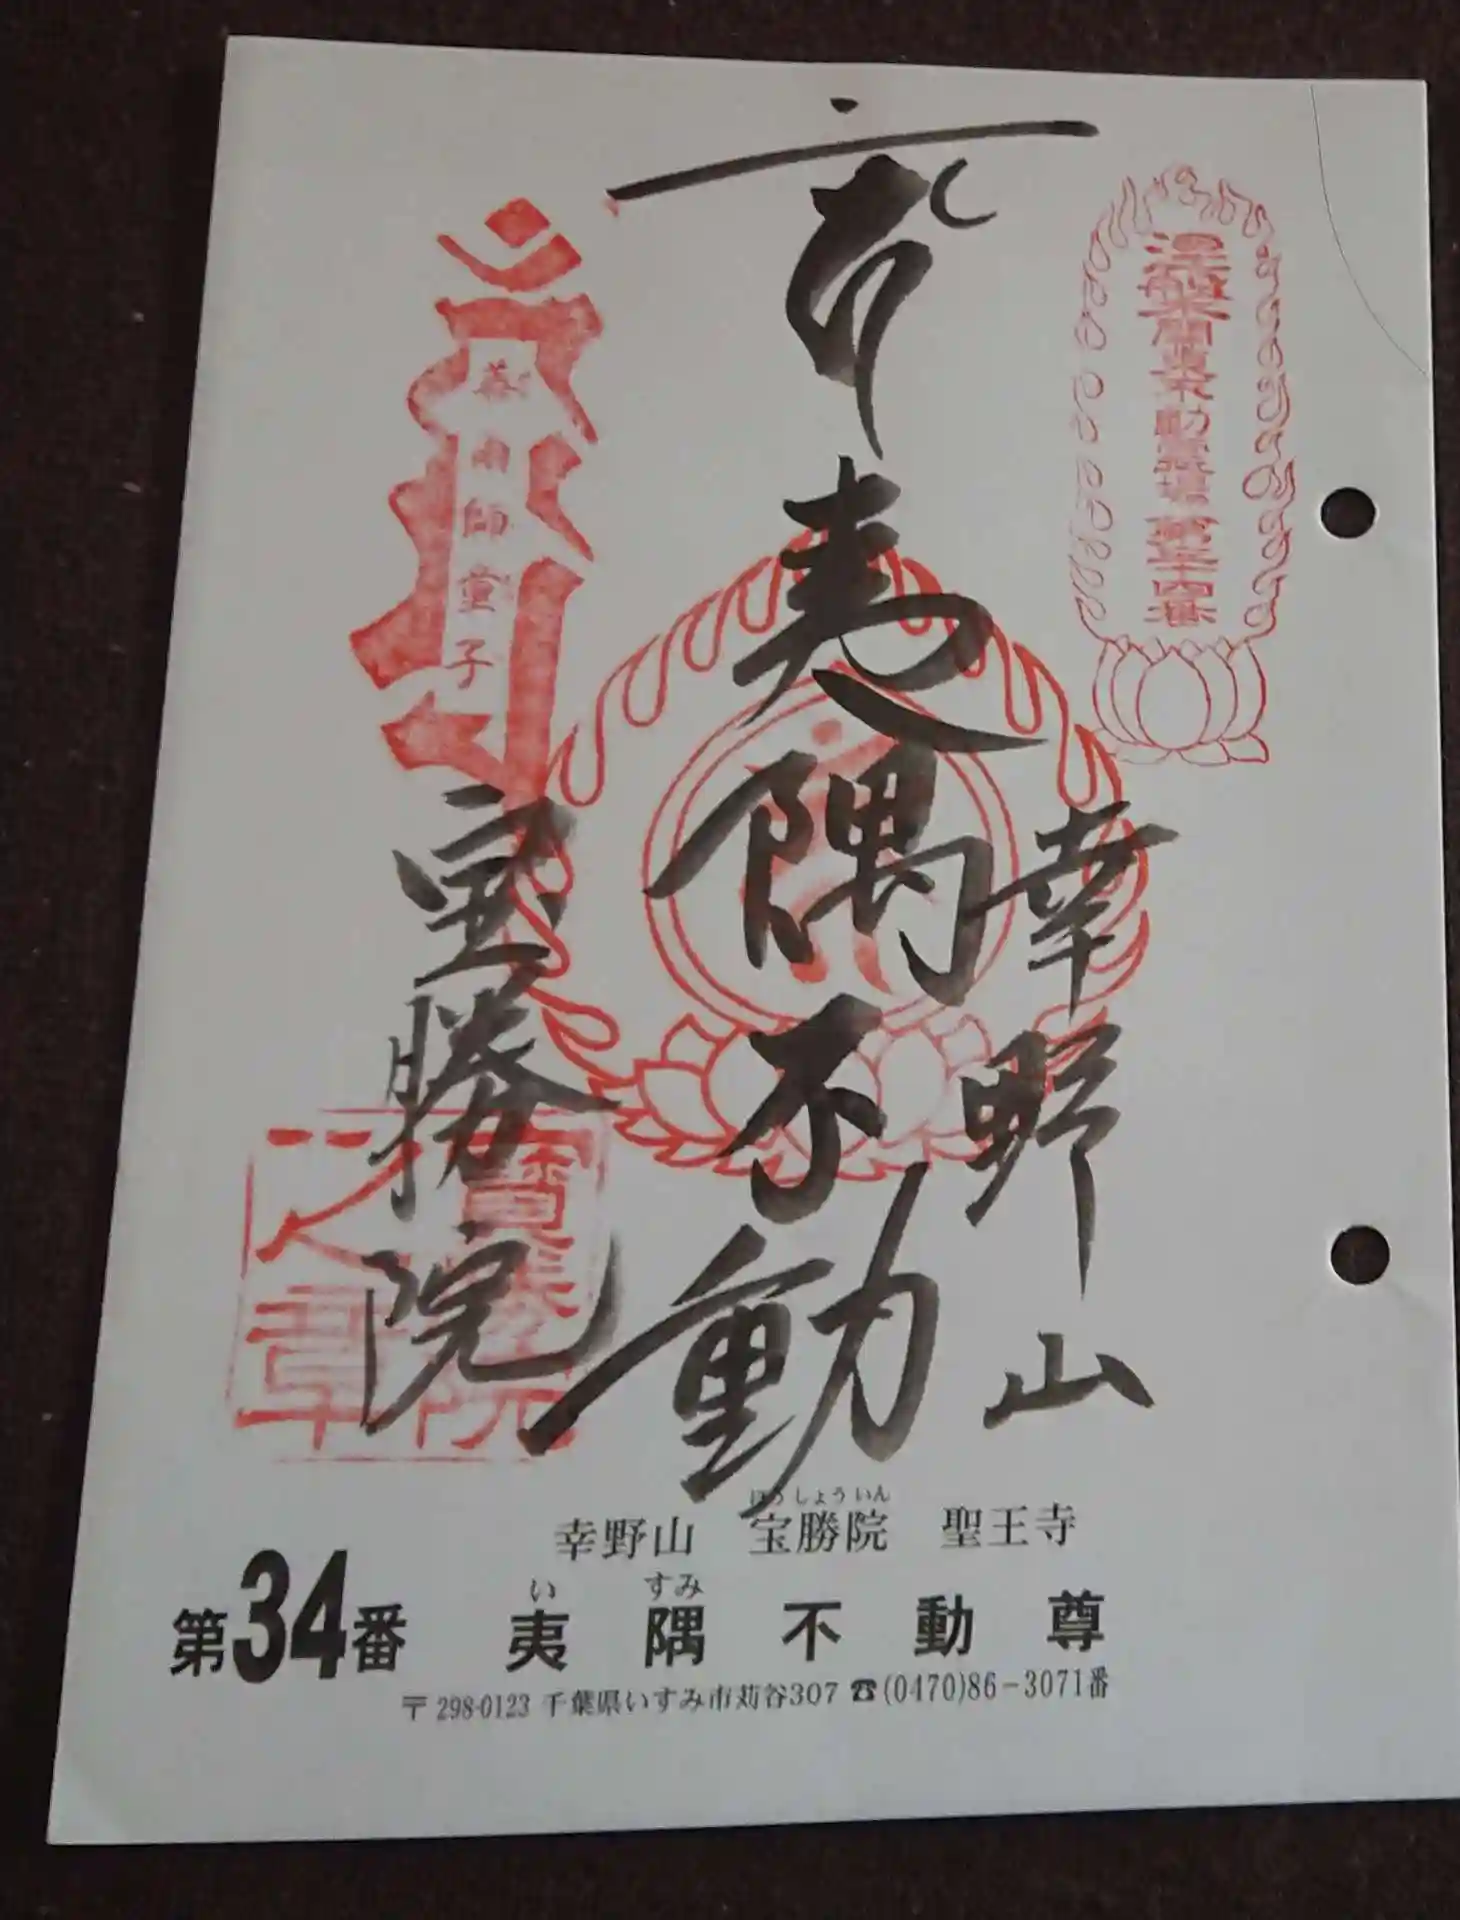 奉
夷隅不動
幸野山
宝勝院
雨師童子
第三十四番
寶勝院
之章
幸野山 宝勝院 聖王寺
ほうしょういん
第34番 夷隅不動尊
い すみ
〒298-0123 千葉県いすみ市苅谷307 ☎(0470)86-3071番